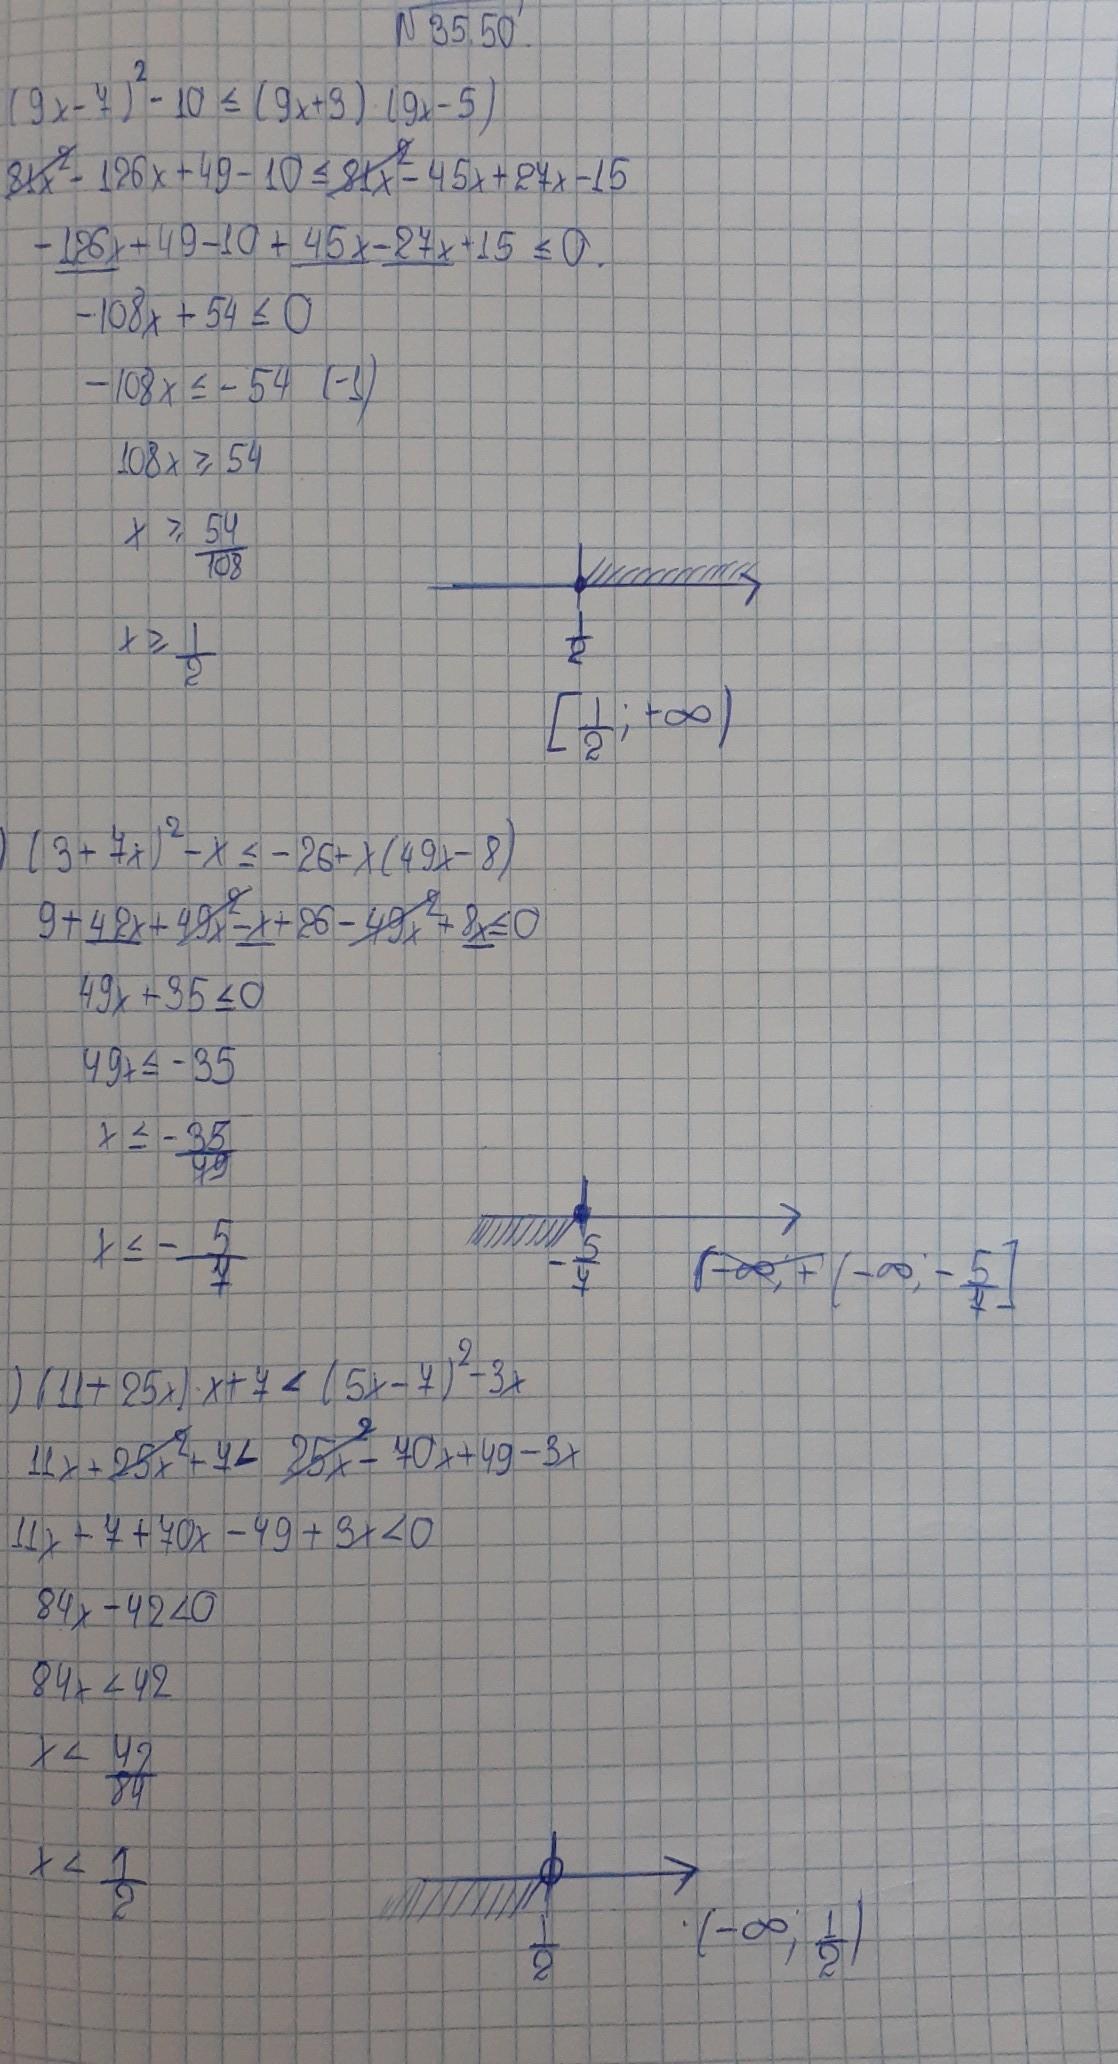 N 35.50.
(9x-7)²-10≤(9x+3)·(9x-5)
81x²-126x+49-10≤81x²-45x+27x-15
-126x+49-10+45x-27x+15≤0.
-108x+54≤0
-108x≤-54 (-1)
108x≥54
x≥54/108
x≥1/2
1/2
[1/2;+∞)
)(3+7x)²-x≤-26+x(49x-8)
9+42x+49x²-x+26-49x²+8x≤0
49x+35≤0
49x≤-35
x≤-35/49
x≤-5/7
-5/7
(-∞;+ (-∞;-5/7]
)(11+25x)·x+7<(5x-7)²-3x
11x+25x²+7<25x²-70x+49-3x
11x+7+70x-49+3x<0
84x-42<0
84x<42
x<42/84
x<1/2
1/2
(-∞;1/2)